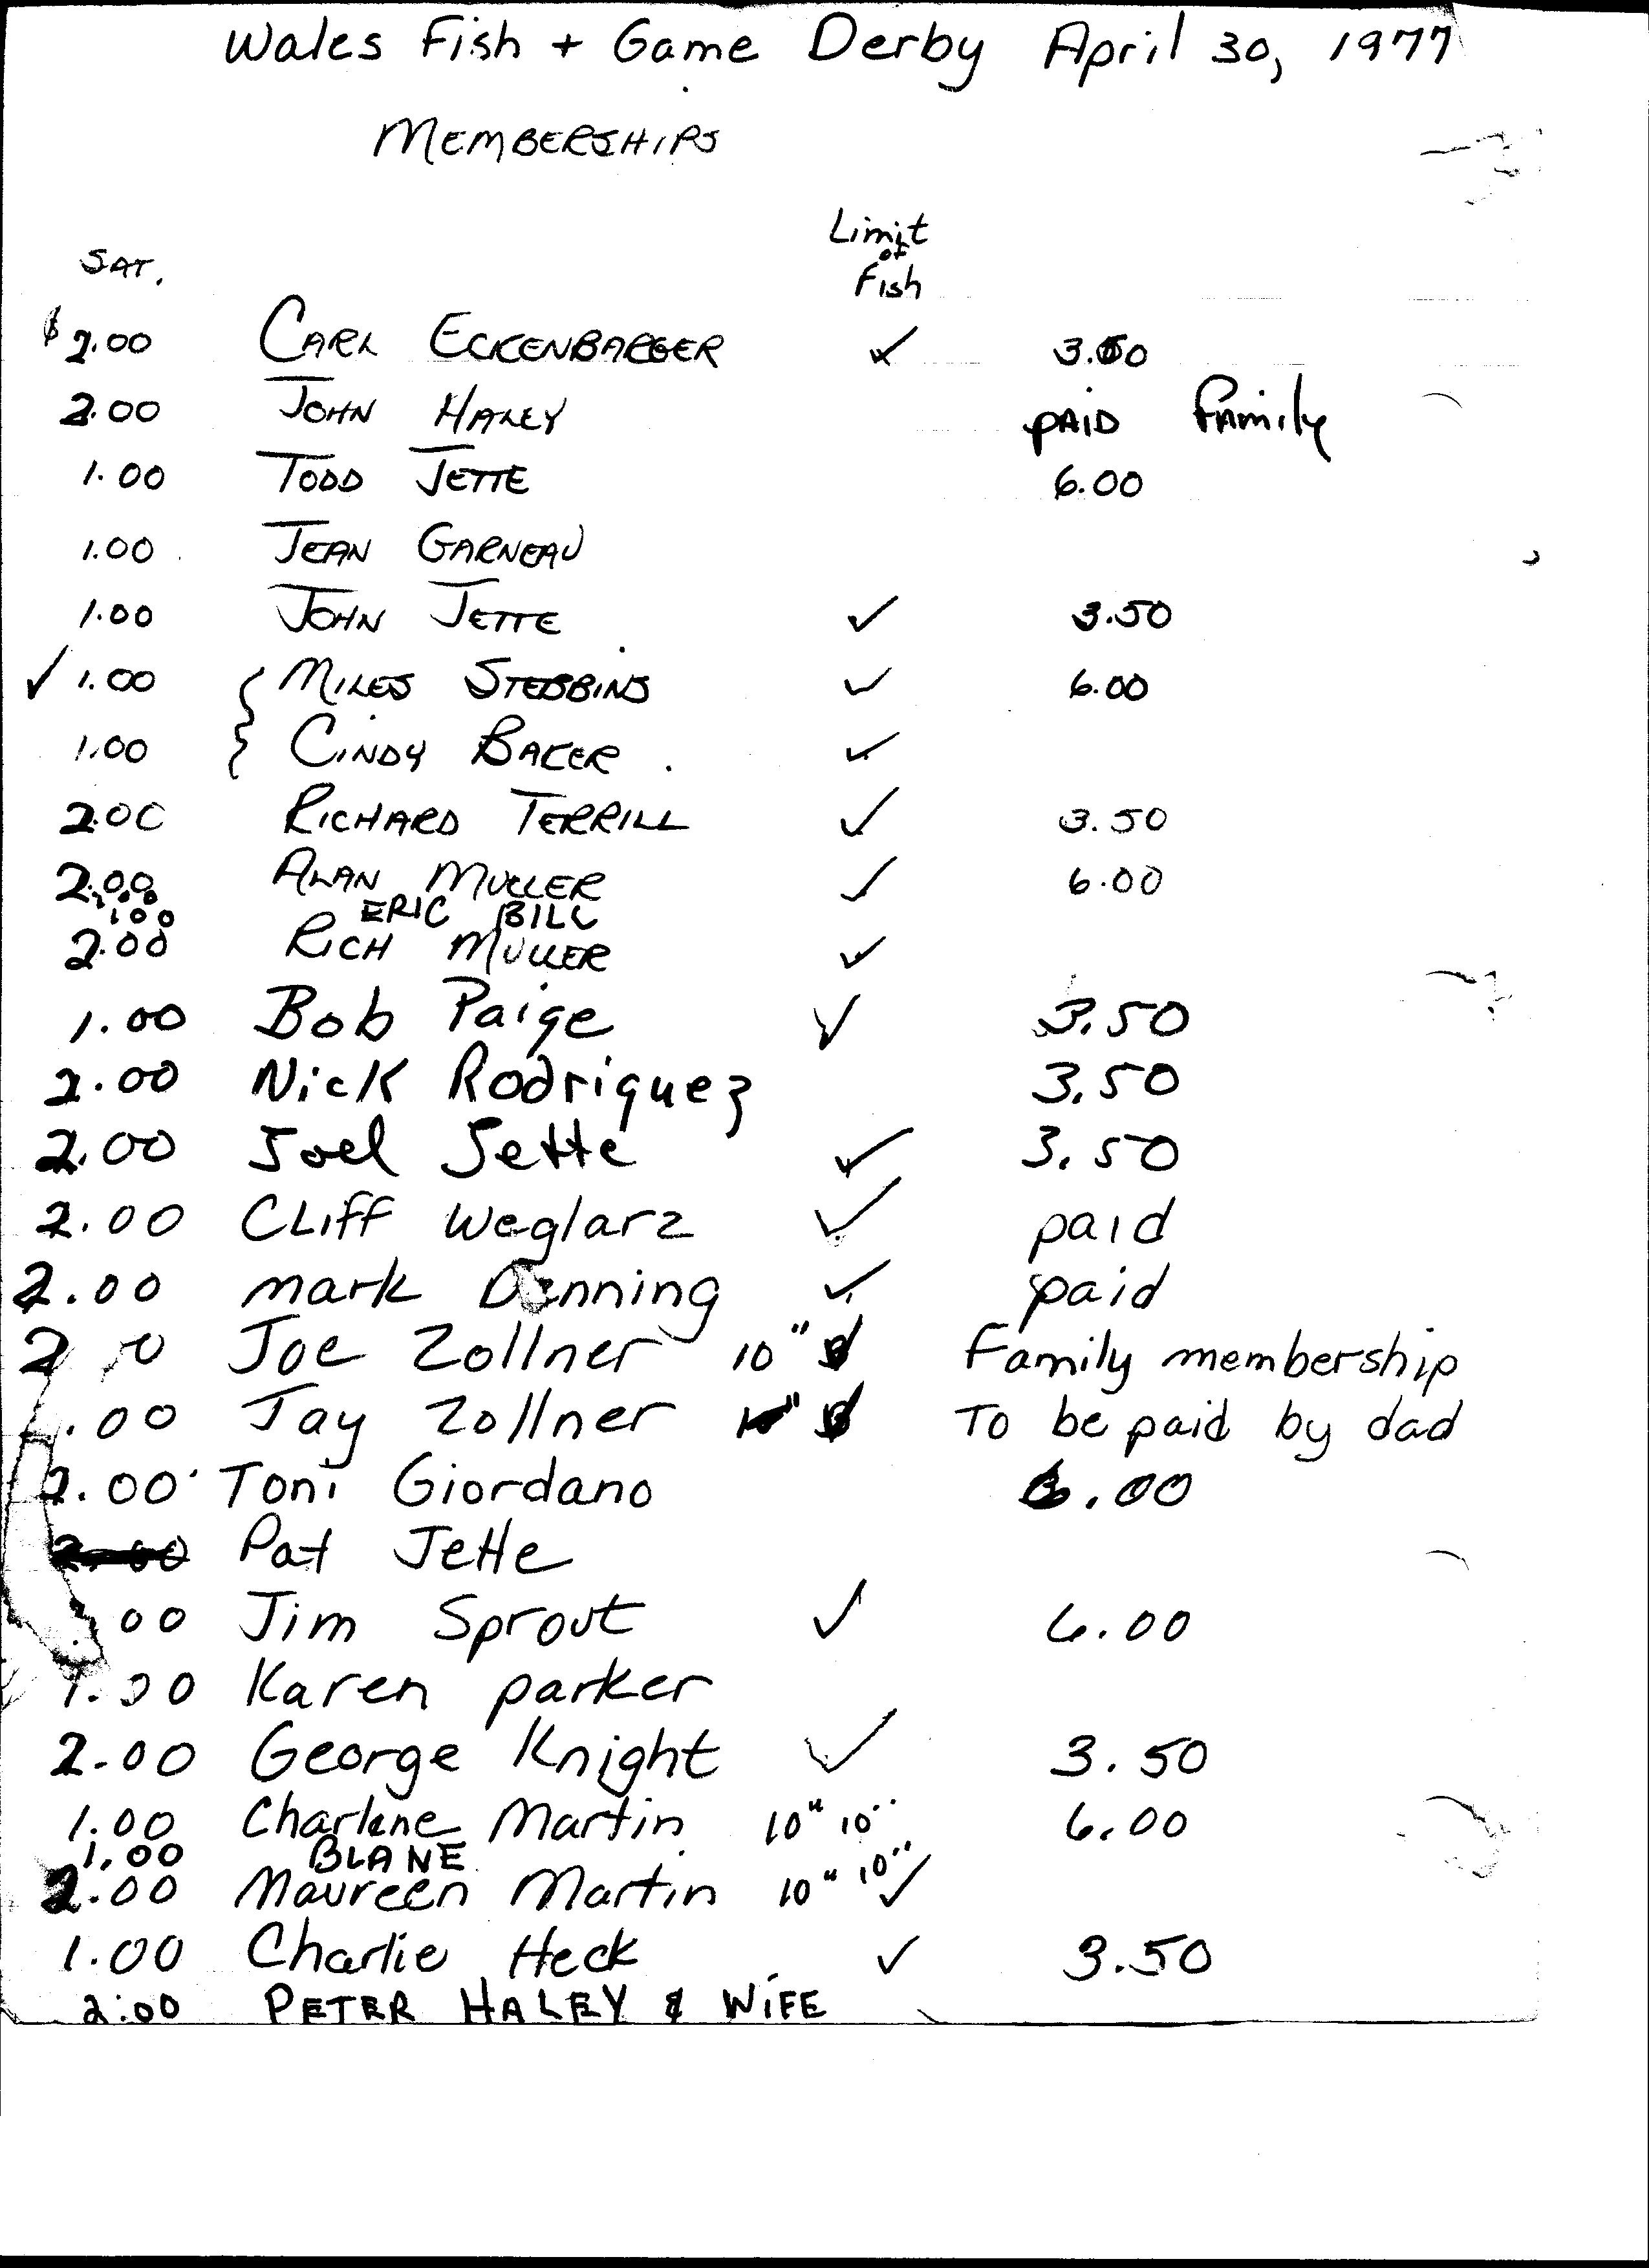 Wales Fish + Game Derby April 30, 1977
MEMBERSHIPS
Limit
of
SAT. Fish
$2.00 CARL ECKENBARGER ✓ 3.50
2.00 JOHN HALEY PAID Family
1.00 TODD JETTE 6.00
1.00 JEAN GARNEAU
1.00 JOHN JETTE ✓ 3.50
✓ 1.00 { MILES STEBBINS ✓ 6.00
1.00 { CINDY BAKER ✓
2.00 RICHARD TERRILL ✓ 3.50
2.00 ALAN MULLER ✓ 6.00
1.00 1.00 ERIC BILL
2.00 RICH MULLER ✓
1.00 Bob Paige ✓ 3.50
2.00 Nick Rodriquez 3.50
2.00 Joel Jette ✓ 3.50
2.00 Cliff Weglarz ✓ paid
2.00 mark Denning ✓ paid
Joe Zollner 10" Family membership
.00 Jay Zollner To be paid by dad
2.00 Toni Giordano 6.00
2.00 Pat Jette
.00 Jim Sprout ✓ 6.00
1.00 Karen parker
2.00 George Knight ✓ 3.50
1.00 Charlene Martin 10" 10" 6.00
1.00 BLANE
2.00 Maureen Martin 10" 10" ✓
1.00 Charlie Heck ✓ 3.50
2.00 PETER HALEY & WIFE